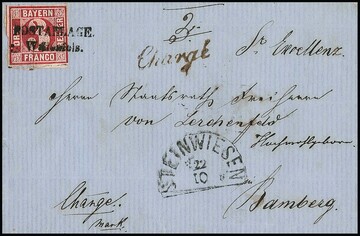 BAYERN
FRANCO
POSTABLAGE.
Wallenfels.
Chargé
Sr Excellenz.
Herrn Staatsrath Freiherrn
von Lerchenfeld
Hochwohlgeboren
STEINWIESEN
22
10
Bamberg.
Charge.